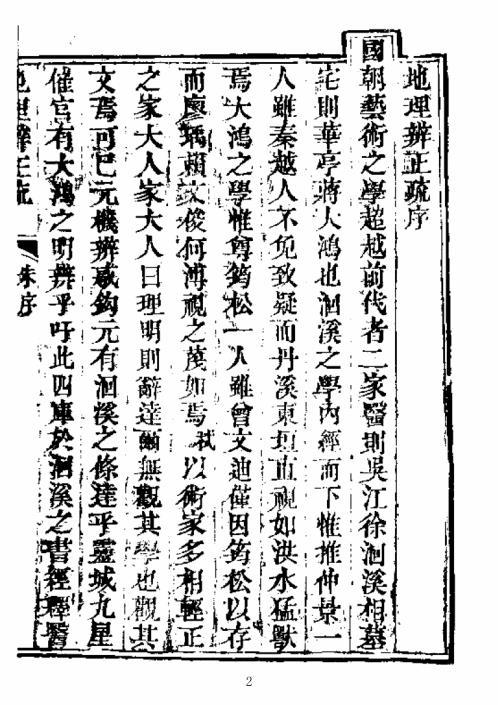 地理辨正疏序
國朝藝術之學超越前代者二家醫則吳江徐洄溪相墓
宅則華亭蔣大鴻也洄溪之學內經而下惟推仲景一
人雖秦越人不免致疑而丹溪東垣直視如洪水猛獸
焉大鴻之學惟尊筠松一人雖曾文迪僅因筠松以存
而廖瑀賴文俊何溥視之蔑如焉試以術家多相輕正
之家大人家大人曰理明則辭達爾無觀其學也觀其
文焉可已元機辨惑鉤元有洄溪之條達乎靈城九星
催官有大鴻之明辨乎吁此四庫於洄溪之書經釋醫
地理辨正疏 朱序
2